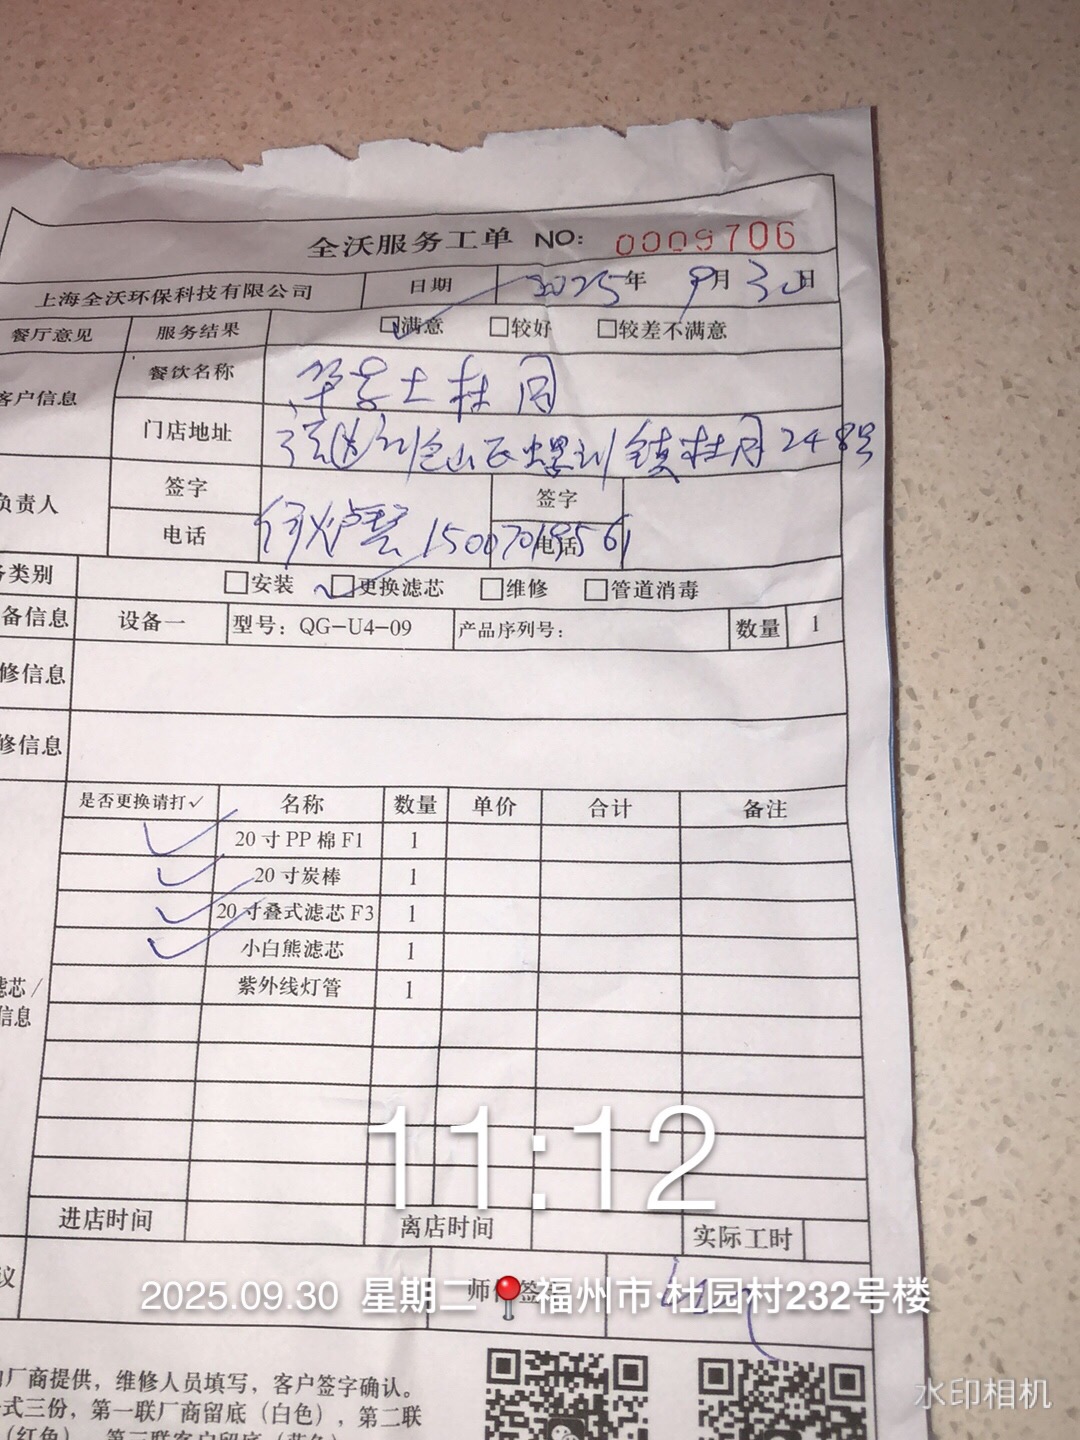 全沃服务工单 NO: 0009706
上海全沃环保科技有限公司 日期 2025年 9月30日
餐厅意见 服务结果 ☑满意 □较好 □较差不满意
客户信息 餐饮名称
门店地址 248号
负责人 签字 签字
电话 15007019561 电话
务类别 □安装 ☑更换滤芯 □维修 □管道消毒
备信息 设备一 型号：QG-U4-09 产品序列号： 数量 1
修信息
修信息
是否更换请打✓ 名称 数量 单价 合计 备注
✓ 20寸PP棉F1 1
✓ 20寸炭棒 1
✓ 20寸叠式滤芯F3 1
✓ 小白熊滤芯 1
紫外线灯管 1
滤芯/
信息
11:12
进店时间 离店时间 实际工时
议 师傅签
2025.09.30 星期二 福州市·杜园村232号楼
厂商提供，维修人员填写，客户签字确认。
式三份，第一联厂商留底（白色），第二联
（红色），第三联客户留底（蓝色）
水印相机